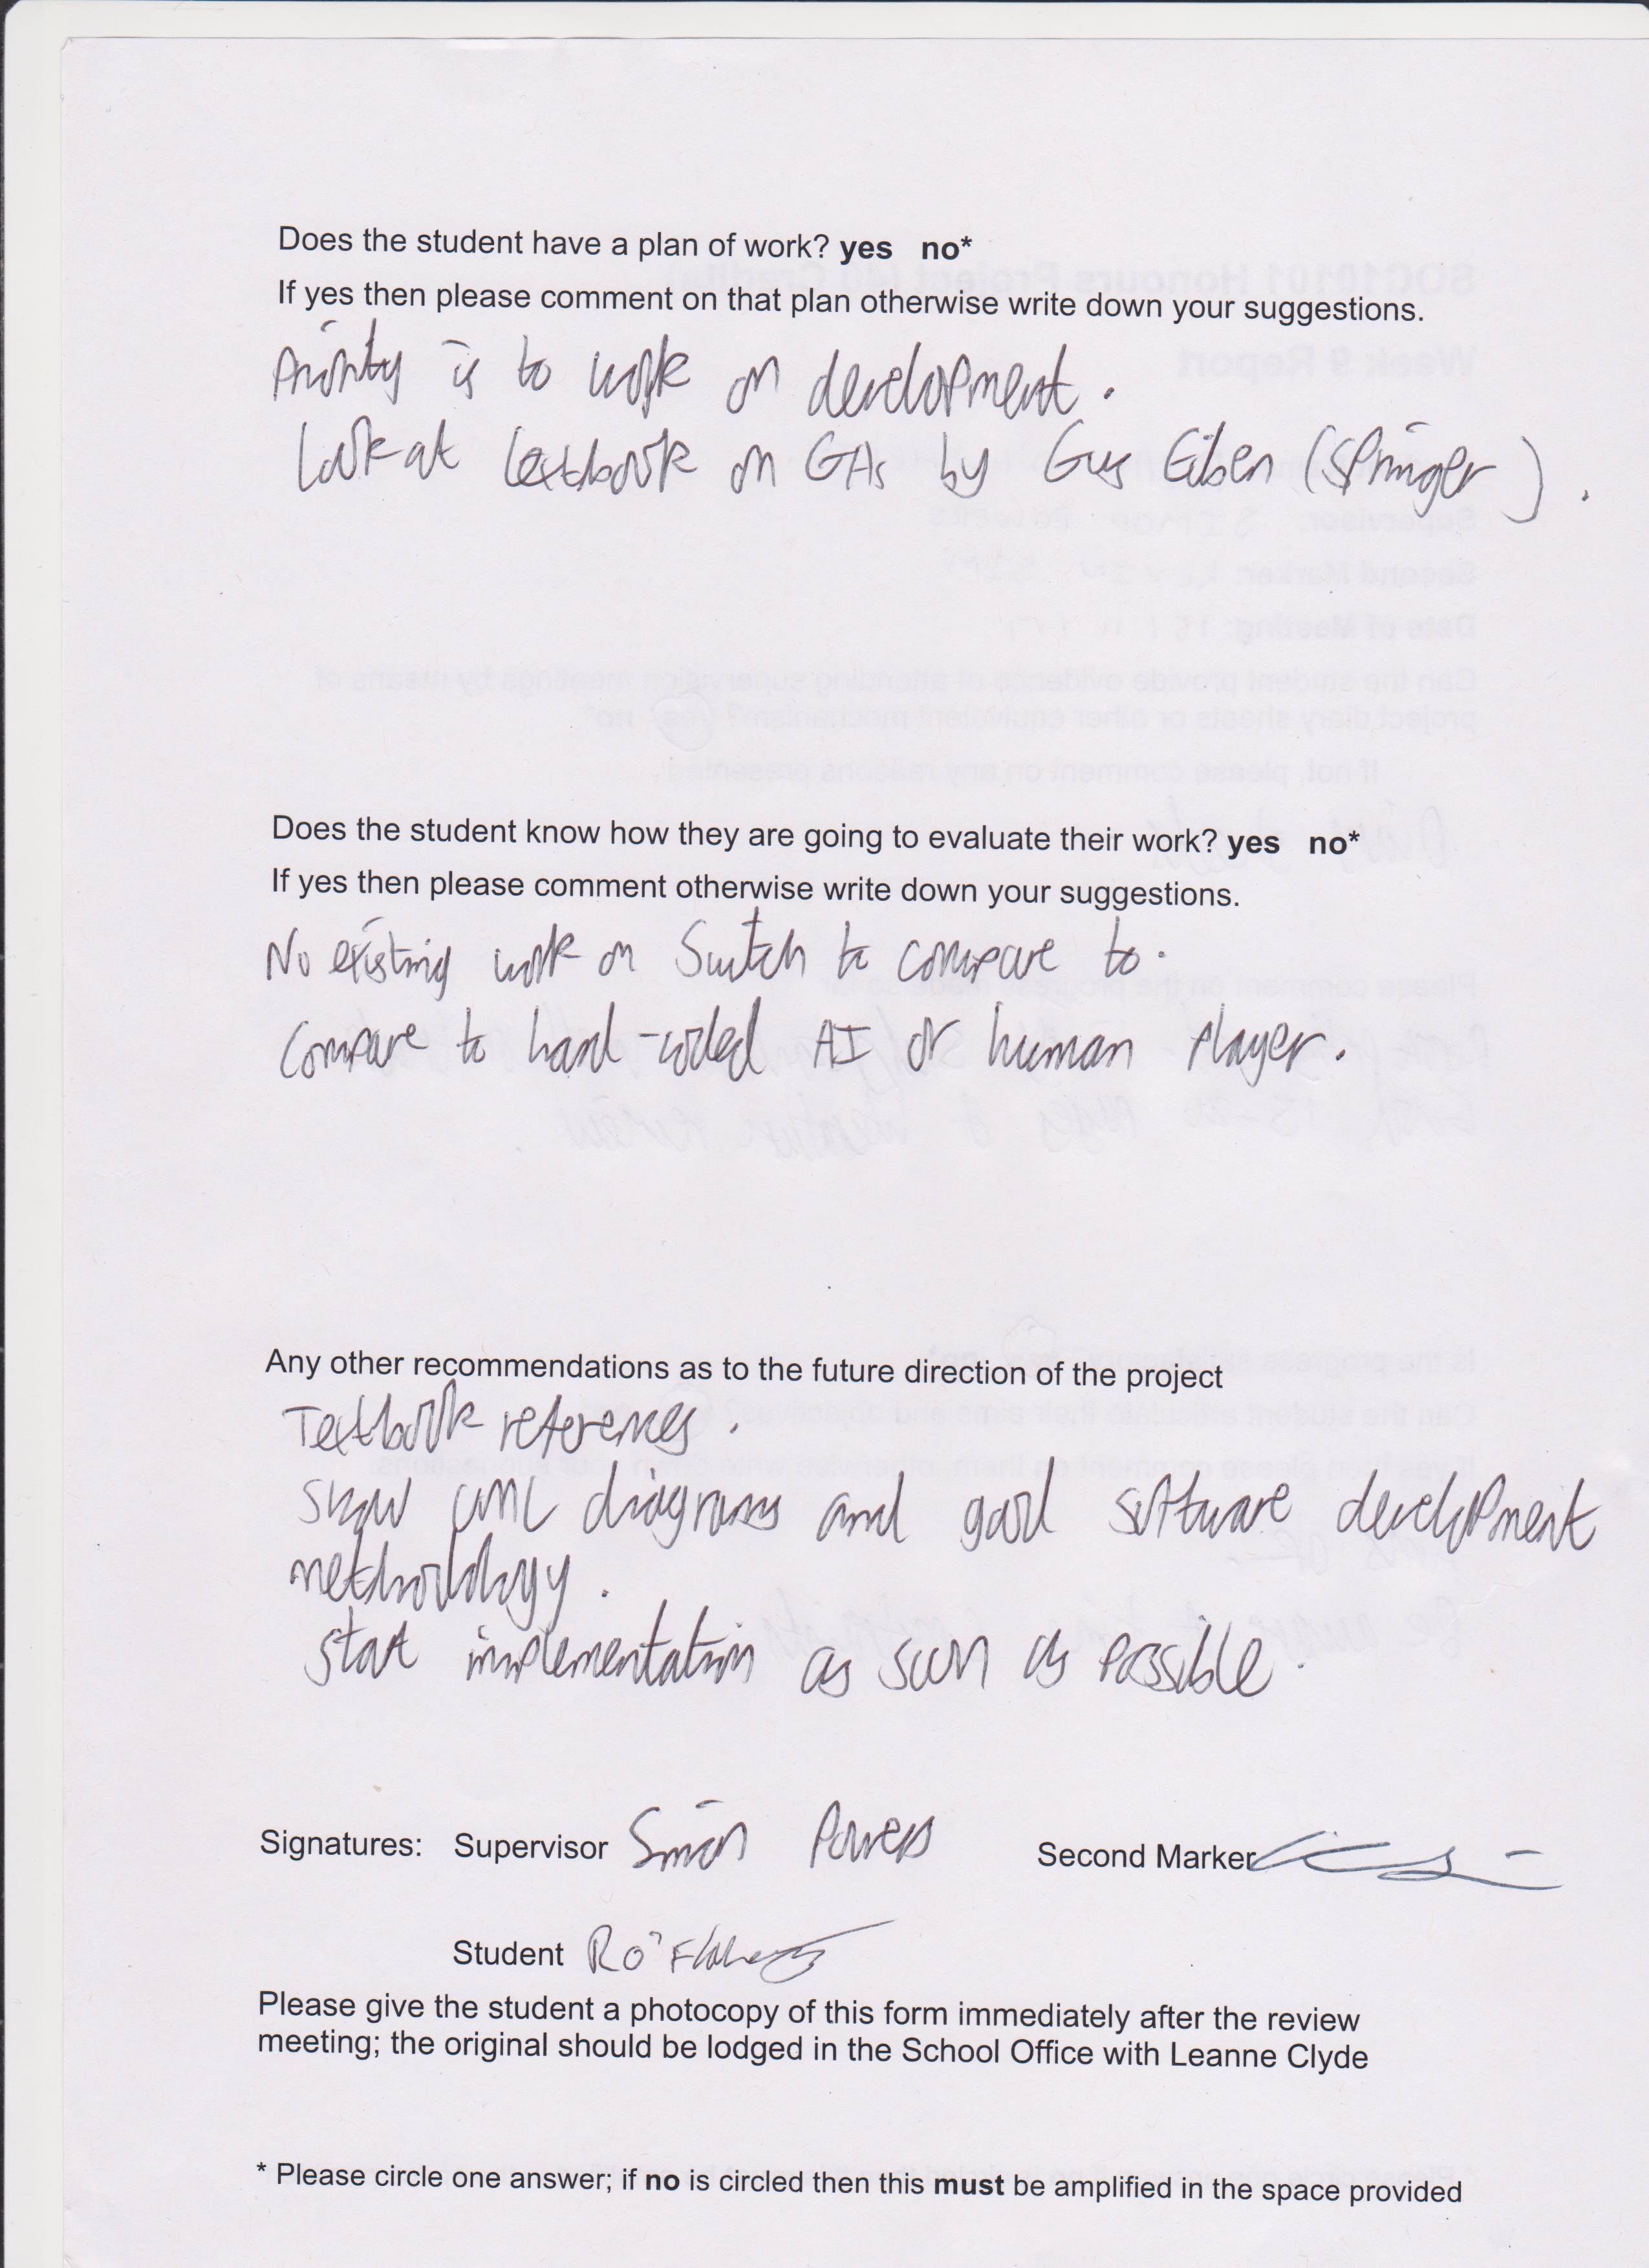 Does the student have a plan of work? yes no*
If yes then please comment on that plan otherwise write down your suggestions.
Priority is to work on development.
Look at textbook on GAs by Gus Eiben (Springer).
Does the student know how they are going to evaluate their work? yes no*
If yes then please comment otherwise write down your suggestions.
No existing work on Switch to compare to.
Compare to hand-coded AI or human player.
Any other recommendations as to the future direction of the project
Textbook references.
Show UML diagrams and good software development
methodology.
Start implementation as soon as possible.
Signatures: Supervisor Simon Powers Second Marker
Student R O'Flaherty
Please give the student a photocopy of this form immediately after the review
meeting; the original should be lodged in the School Office with Leanne Clyde
* Please circle one answer; if no is circled then this must be amplified in the space provided